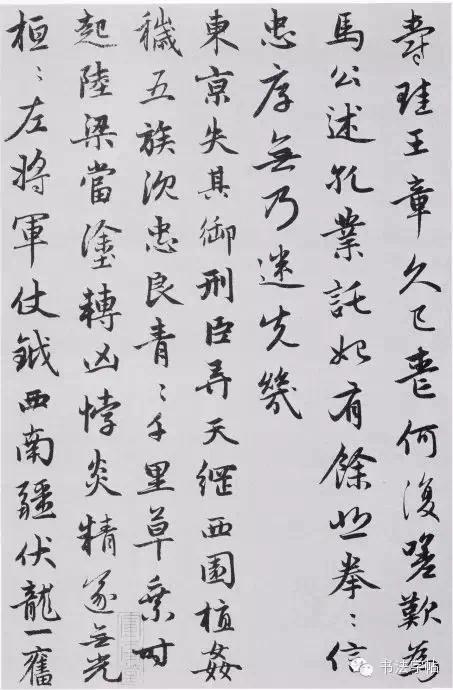 爵珪王章久已喪何復嗟歎為
馬公述孔業託始有餘悲拳〻信
忠厚無乃迷先幾
東京失其御刑臣弄天綱西園植姦
穢五族沉忠良青〻千里草乗時
起陸梁當塗轉凶悖炎精遂無光
桓〻左將軍仗鉞西南疆伏龍一奮
书法字帖